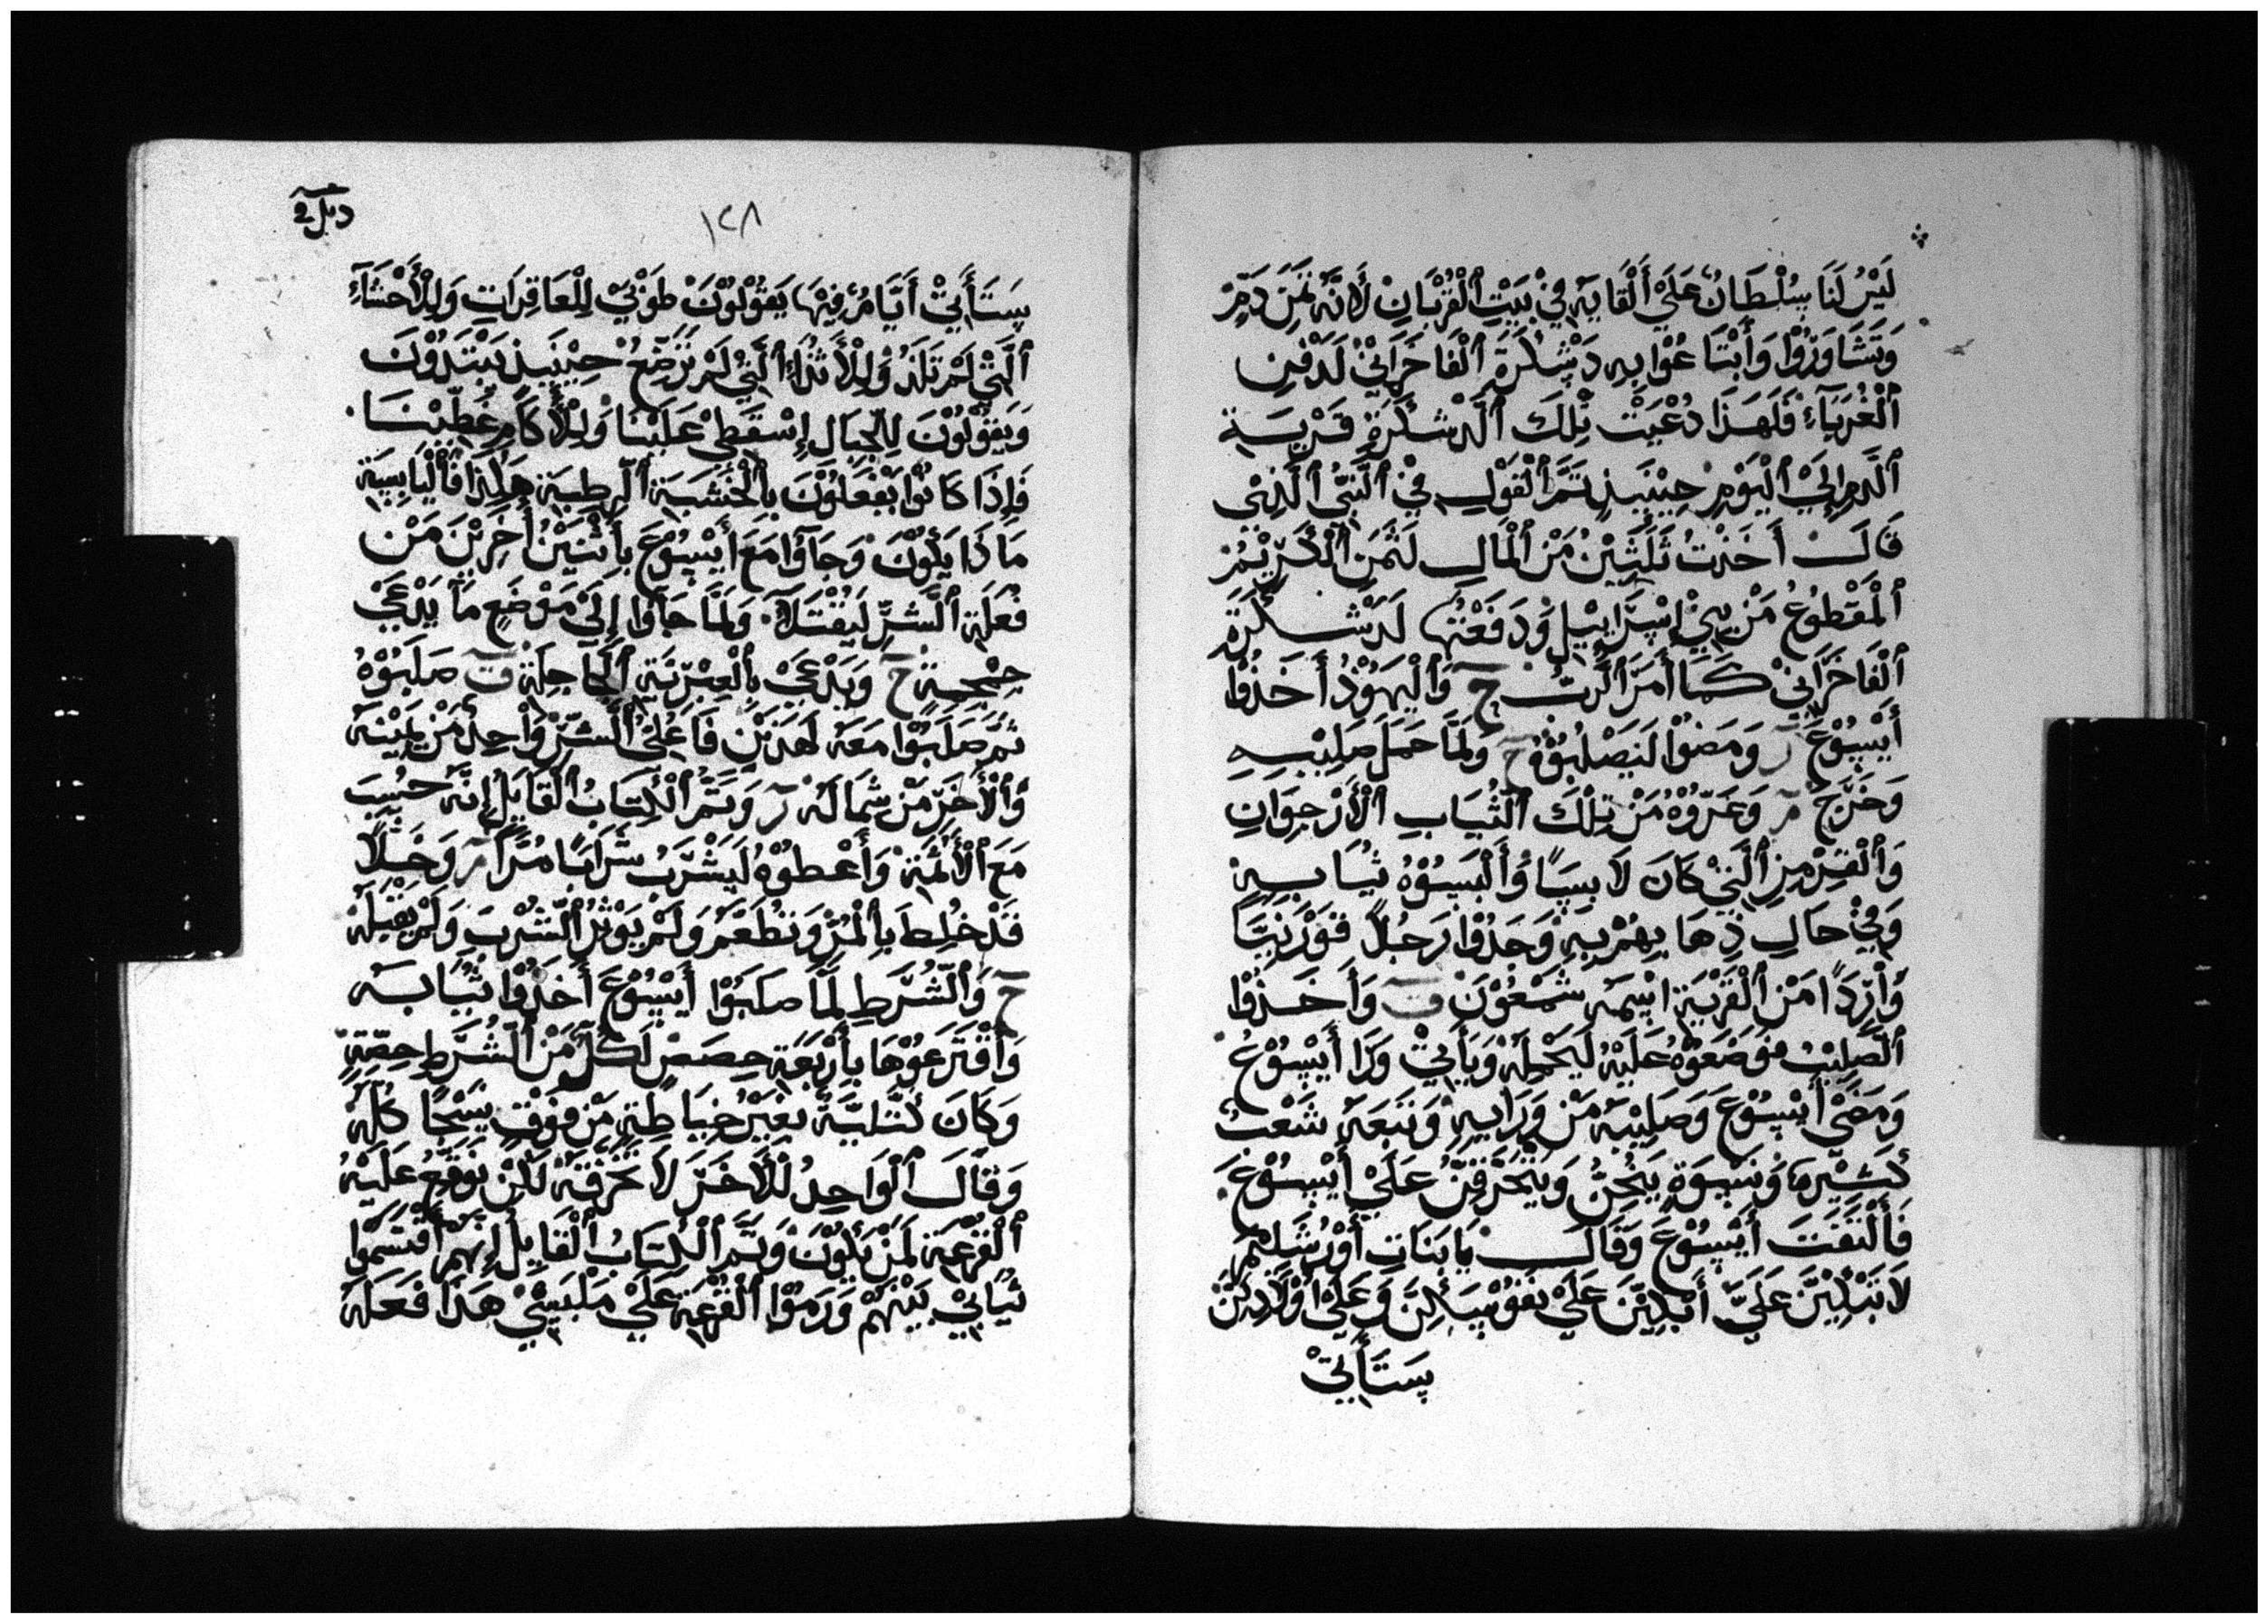 لَيْسَ لَنَا سُلْطَانٌ عَلَيَ أَلْقَايِهِ فِيْ بَيْتِ ٱلْقُرْبَانِ لَانَّهُ ثَمَنَ دَمٍ
وَتَشَاوَرُوْا وَأَبْتَاعُوْا بِهِ دَسْكَرَةَ ٱلْفَاخَرَانِيْ لَدَفْنِ
ٱلْغُرَبَآءِ فَلَهَذَا دُعْيَتْ تِلِكَ ٱلَدسْكَرَةِ قَرْيَـسَـة
ٱلَّدمِ إِلَيْ ٱلْيَوْمِ حِيْنَيِـذٍ تَمَّ ٱلْقَوْلِ فِيْ ٱلَّنبِّيُ ٱلَّذِيْ
قَالَ أَخَذْتُ ثَلَثَيْنَ مَنْ ٱلْمَالِ لَثَمَنِ ٱلْكَرِيْمُ
ٱلْمَقْطُوعُ مَنْ بِنِيْ إِسْرَايِيْلِ وَدَفَعْتُهَا لَدَسْكَرَةِ
ٱلْفَاخَرَانِيْ كَمَا أَمَرَ ٱلَّربُ ح وَٱلْيَهُوْدُ أَخَذُوْا
أَيْسُوْعَ ر وَمَضوْا لَيَصْلُبُوْهُ ح وَلَمَّا حَمَلَ صَلِيْبِـهِ
وَخَرَّجَ مر وَعَرّوْهُ مَنْ تِلْكَ ٱلثُيَابِ ٱلْأَرْجوَانِ
وَٱلْقِرْمِزِ ٱلَّتِيْ كَانَ لَابِسَهَا وُأَلْبَسُوْهُ ثُيَابِـهِ
وَفِيْ حَالِ ذِهَابِهِمْ بِهِ وَجَدُوْا رَجُلاً قَوْرَنِيّاً
وُأرّدًا مَنْ ٱلْقَرْيَةِ اسْمَهُ شَمْعُوْنَ ت وَأَخَـذُوْا
ٱلصَّلِيْبَ فوَضَعَوْهُ عَلَيْهُ لَيَحْمِلَهْ وَيَأَتِيْ وَرَا أَيْسُوْعُ
وَمَضَيْ أَيْسُوْعَ وَصَلِيْبَهُ مَنْ وَرَايِهِ وَتَبَعَهُ شَعْبُ
كَثيْرٌ وَنَسْوَةٍ يَنُحْنُ وَيَتَحَرَّقِنَّ عَلَيْ أَيْسُوْعَ
فَأَلْتَفَتَ أَيْسُوْعَ وَقَالَ يَا بَنَاتِ أُوْرُشَلِيْمُ
لَا تَبْكِيْنَ عَلَيَّ أَبْكِيْنَ عَلَيْ نفُوْسِكِنَّ وَعَلَيْ أوْلَادِكِنَّ
سَتَأَتِيْ
دبل٢
١٢٨
سَتَأَتِيْ أَيَّامُ فِيْهَا يَقُوْلُوْنَ طوَبْيْ لِلْعَاقِرَاتِ وَلِلْأَحْشَآءِ
ٱلَّتِيْ لَمْ تَلَدُ وَلِلْأَثْدَآءِ ٱلَّتِيْ لَمْ تَرَضِّعُ حِيْنَيـذٍ يَبْتَدُوْنَ
وَيَقُوْلُوْنَ لِلْجَبَالِ إِسْقَطِيْ عَلَيْنَا وَلِلْأَكَامِ غَطِيْنَـا
فَإِذَا كَانُوْا يَفْعَلُوْنَ بِٱلْخَشْبَةِ ٱلَرِطِبَةِ هَكَذَا فَٱلْيَابِسَةِ
مَاذَا يَكُوْنَ وَجَاوُا مَعَ أَيْسُوْعَ بِأَثْنَيْنْ أَخَرِيْنَ مَنْ
فُعَلَةِ ٱلَّشَرِّ لَيُقْتَلَا وَلَمَّا جَاوُا إِلَيْ مَوْضَعِ مَا يَدْعَيْ
جِمْجِمـةِ ح وَيَدْعَيْ بِٱلْعِبْرِيَّةِ ٱلْجَاجلَةِ ت صَلَبُوْهُ
ثمَّ صَلَبُوْا مَعَهُ لَهَذَيْنِ فَاعِلَيْ ٱلَّشَرِّ وَأحِدُ مَنْ يَمِيْنَهُ
وَٱلْأَخَرّ مَنْ شمَالهُ ر وَتَمَّ ٱلْكِتَابُ ٱلْقَايِلْ إِنَّهُ حَسُبَ
مَعَ ٱلْأَثَمَةْ وَأَعْطوْهُ لَيَشْرَبُ شَرَابًا مُرّاً مر وَخَـلاً
قَدْ خُلِطَ بِٱلْمُرّْ وَنطَعَمَ وَلَمْ يَوْثِرْ ٱلْشُرْبَ وَلَمْ يَقْبِلَهْ
ح وَٱلْشُرَّطِ لَمَّا صَلَبُوْا أَيْسُوْعَ أَخَذُوْا ثُيَابَـهُ
وَأقْتَرَعُوْهَا بِأَرْبَعَةِ حِصَصْ لَكُلِ مَنْ ٱلْشُرَّطِ حِصَّةِ
وَكَانَ كَتَّلِيَّهْ بغَيْرُ خِيَاطَةِ مَنْ فوْقِ يَنْسَجُا كُلَهْ
وَقَالَ ٱلْوَاحِدُ لْلْأَخَرْ لَا نَخَرْقَهُ لَكِنْ نوَقَعُ عَلَيْهُ
ٱلْقُرْعَةِ لَمَنْ يَكُوْنَ وَتَمَّ ٱلْكِتَابُ ٱلْقَايِلْ إِنَهُمْ أَقْتَسَمُوْا
ثيَابِيْ بَيْنَهُمْ وَرَمَوْا ٱلْقُرْعَةِ عَلَيْ مَلْبَسِيْ هَذَا فَعَلَهُ